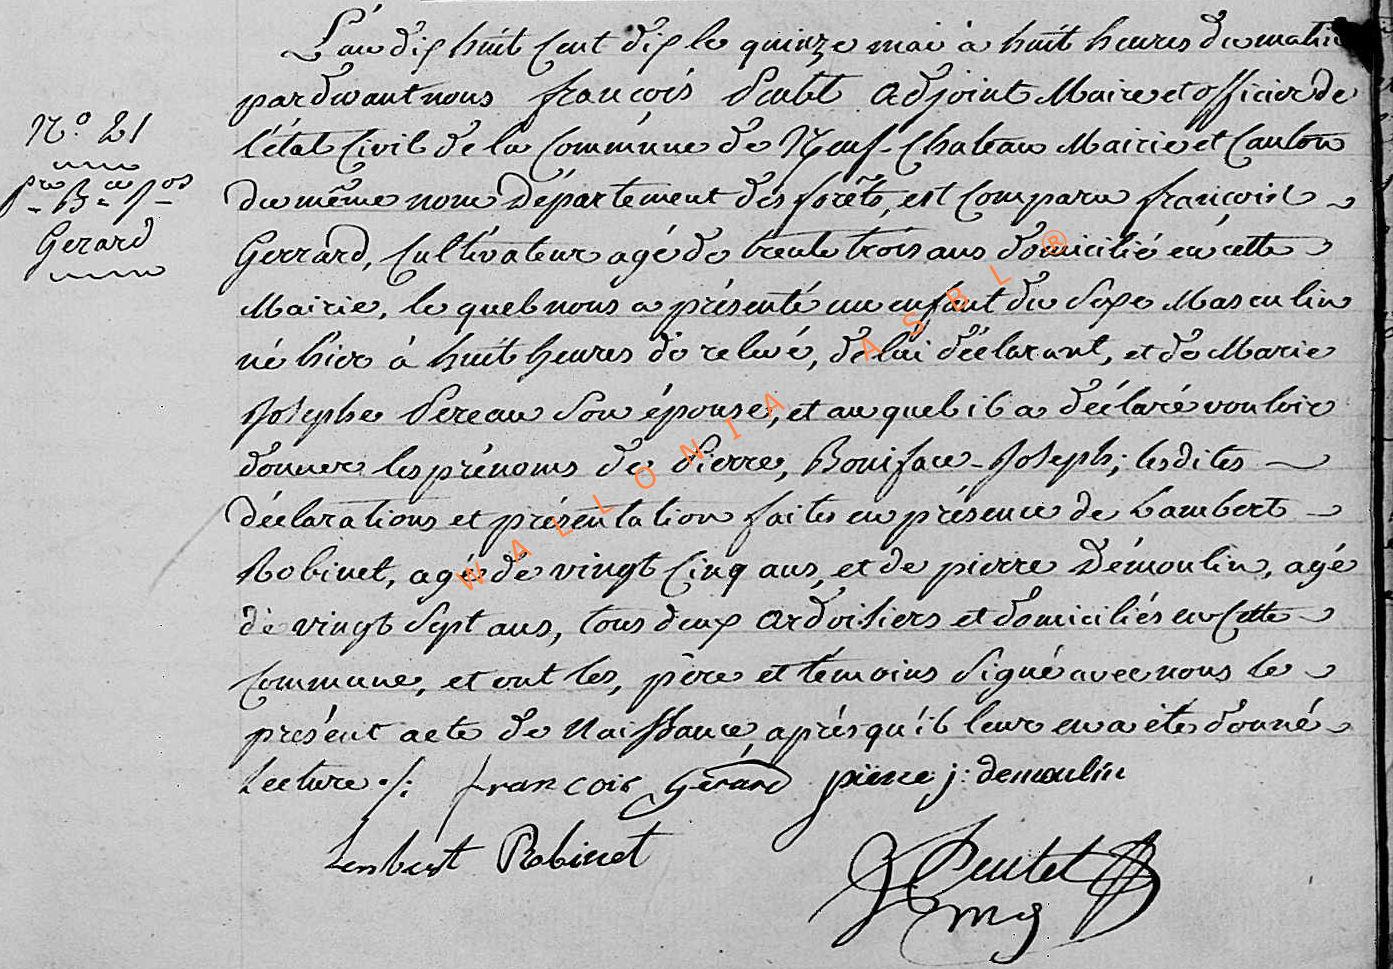 N.o 21
Pre Bce Jos
Gerard
L'an dix huit Cent dix le quinze mai à huit heures du matin
pardevant nous françois Adjoint Maire et officier de
l'état Civil de la Commune de Neuf-Chateau Mairie et Canton
du même nom Département des forêts, est Comparu françois
Gerrard, Cultivateur agé de trente trois ans domicilié en cette
Mairie, le quel nous a présenté un enfant du Sexe Masculin
né hier à huit heures de relevé, de lui déclarant, et de Marie
Josephe Pereau Son épouse, et au quel il a déclaré vouloir
donner les prénoms de Pierre, Boniface-Joseph; les dites
déclarations et présentation faites en présence de Lambert
Robinet, agé de vingt Cinq ans, et de pierre Démoulin, agé
de vingt Sept ans, tous deux ardoisiers et domiciliés en Cette
Commune, et ont les, père et témoins Signé avec nous le
présent acte de Naissance, après qu'il leur en a été donné
Lecture ./:  francois Gérard  pierre j: demoulin
Lambert Robinet
WALLONIA ASBL ®